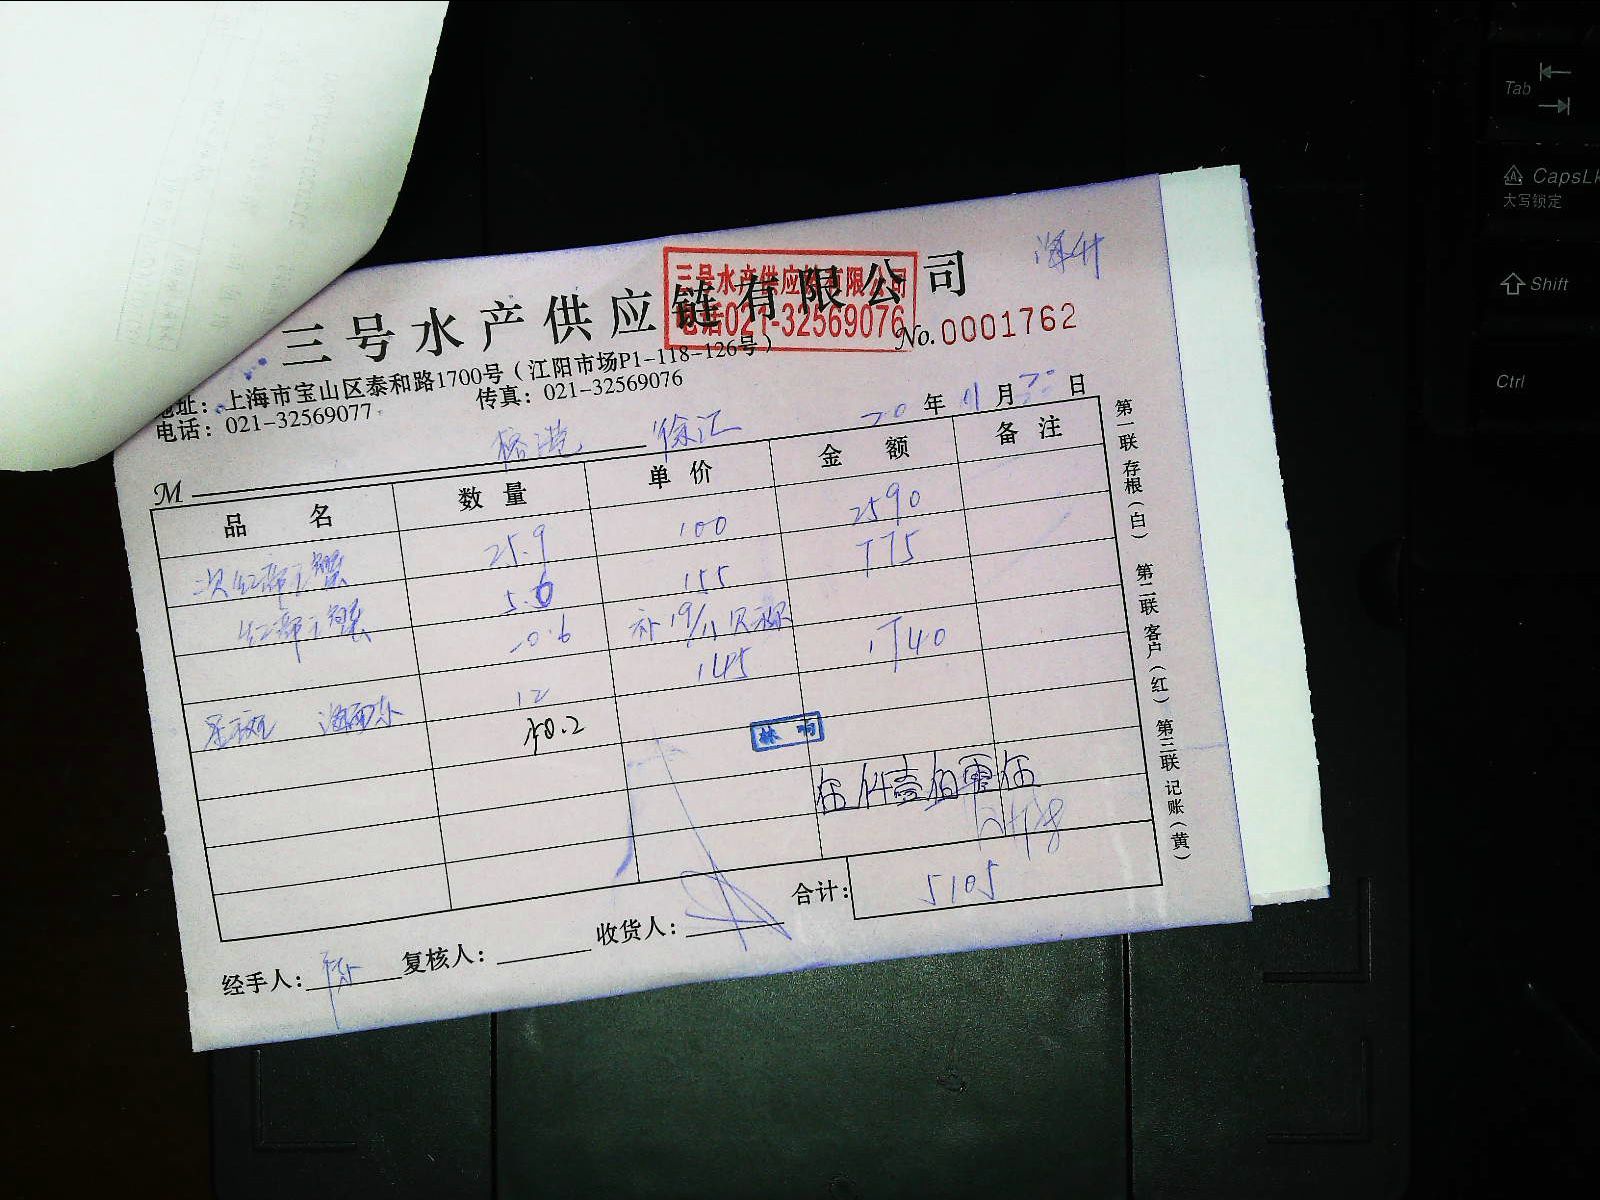 三号水产供应链有限公司
三号水产供应链有限公司
电话021-32569076
No.0001762
地址：上海市宝山区泰和路1700号（江阳市场P1-118-126号）
电话：021-32569077
传真：021-32569076
M 徐汇 20年11月30日
品名 数量 单价 金额 备注
25.9 100 2590
5.6 155 775
-0.6 补19/11
12 145 1740
伍仟壹佰零伍
合计：5105
经手人： 复核人： 收货人：
第一联 存根（白）
第二联 客户（红）
第三联 记账（黄）
Tab
CapsLk
大写锁定
Shift
Ctrl